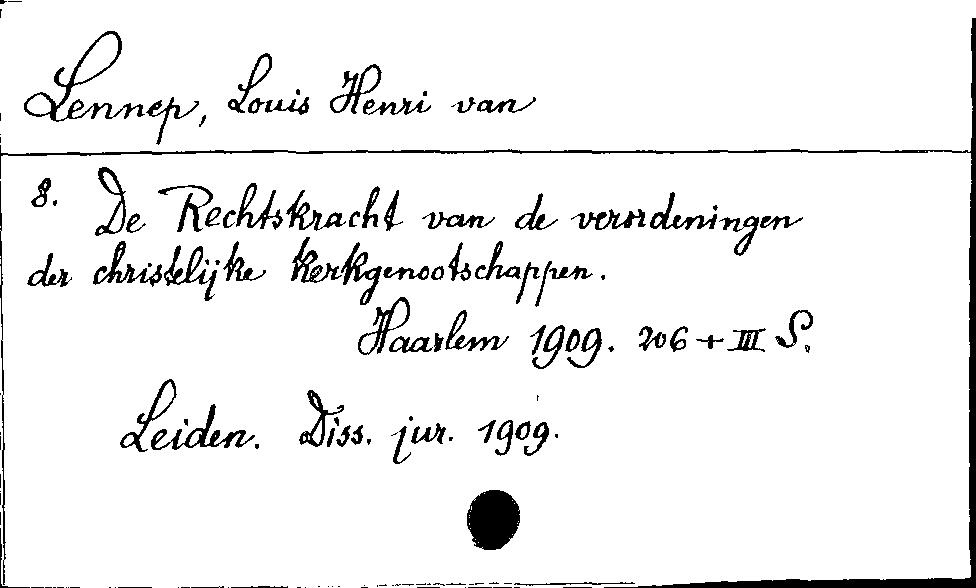 Lennep, Louis Henri van
8. De Rechtskracht van de verordeningen
der christelijke Kerkgenootschappen.
Haarlem 1909. 206 + III S.
Leiden. Diss. jur. 1909.